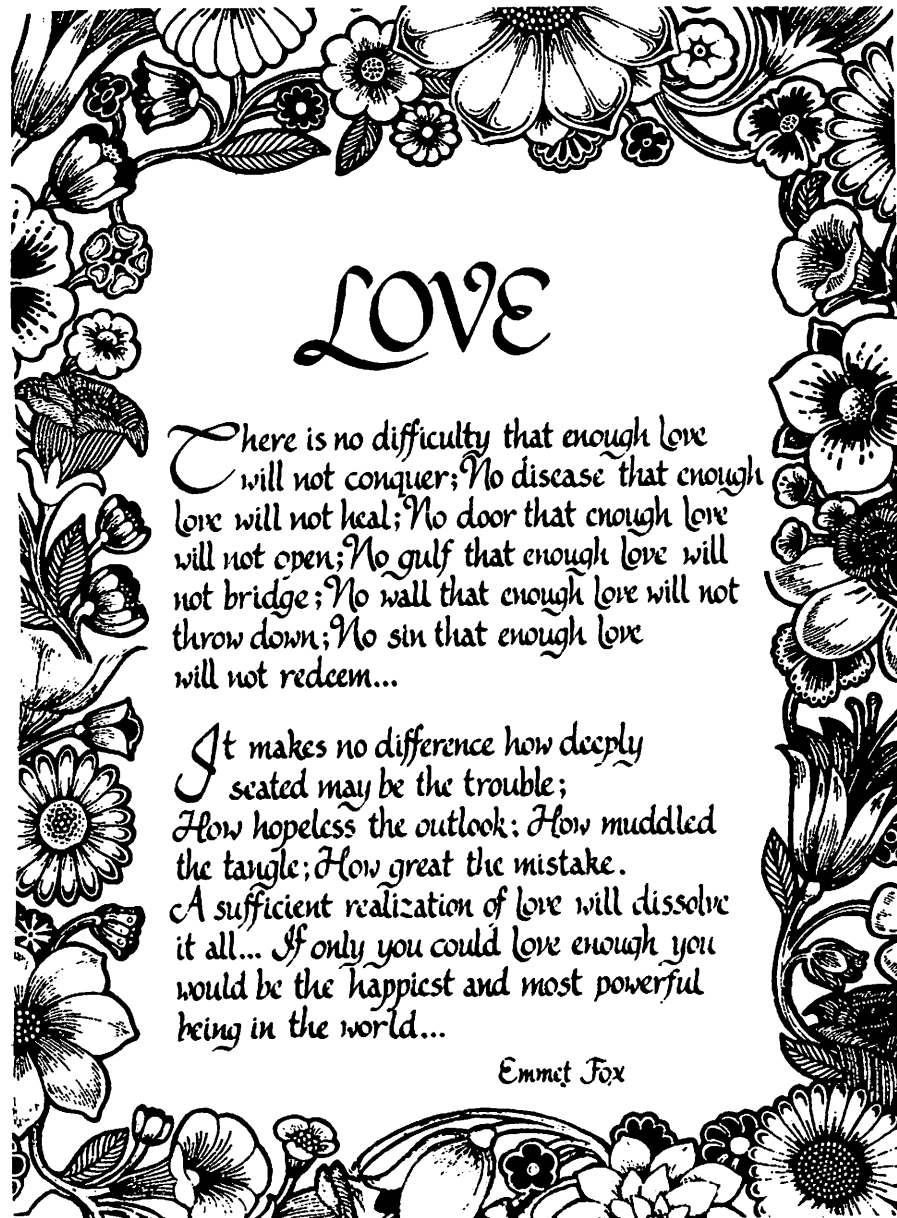 LOVE
There is no difficulty that enough love
will not conquer; No disease that enough
love will not heal; No door that enough love
will not open; No gulf that enough love will
not bridge; No wall that enough love will not
throw down; No sin that enough love
will not redeem...
It makes no difference how deeply
seated may be the trouble;
How hopeless the outlook; How muddled
the tangle; How great the mistake.
A sufficient realization of love will dissolve
it all... If only you could love enough you
would be the happiest and most powerful
being in the world...
Emmet Fox